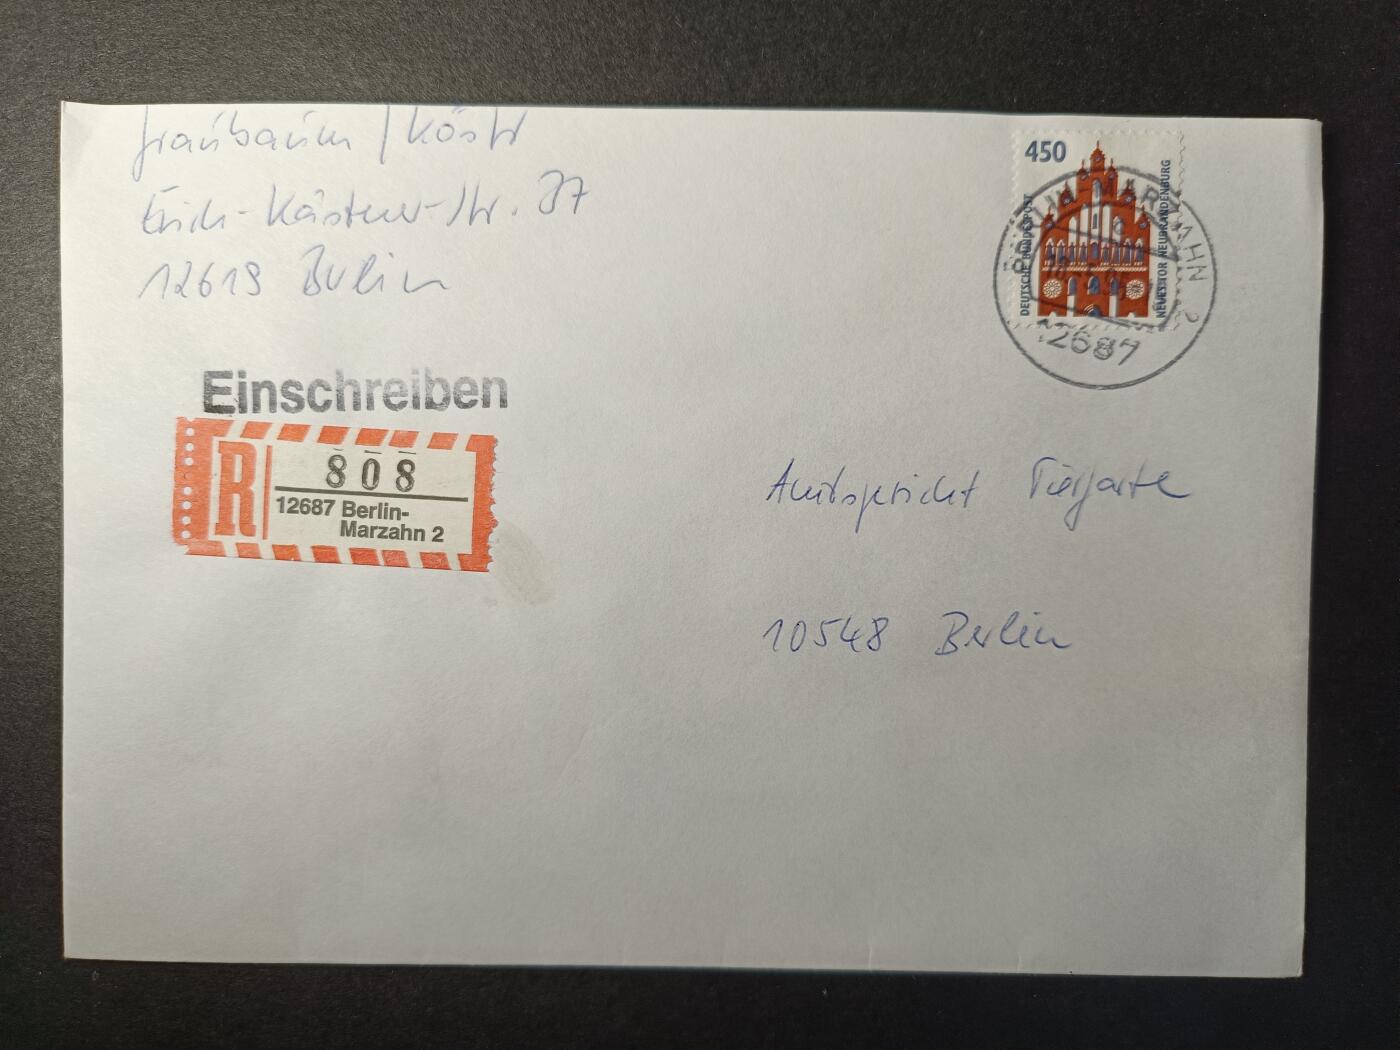 Graubaum / Köstr
Erich-Kästner-Str. 87
12619 Berlin
450
DEUTSCHE BUNDESPOST
NEUES TOR NEUBRANDENBURG
BERLIN MARZAHN 2
12687
Einschreiben
R
808
12687 Berlin-
Marzahn 2
Amtsgericht Tiergarten
10548 Berlin